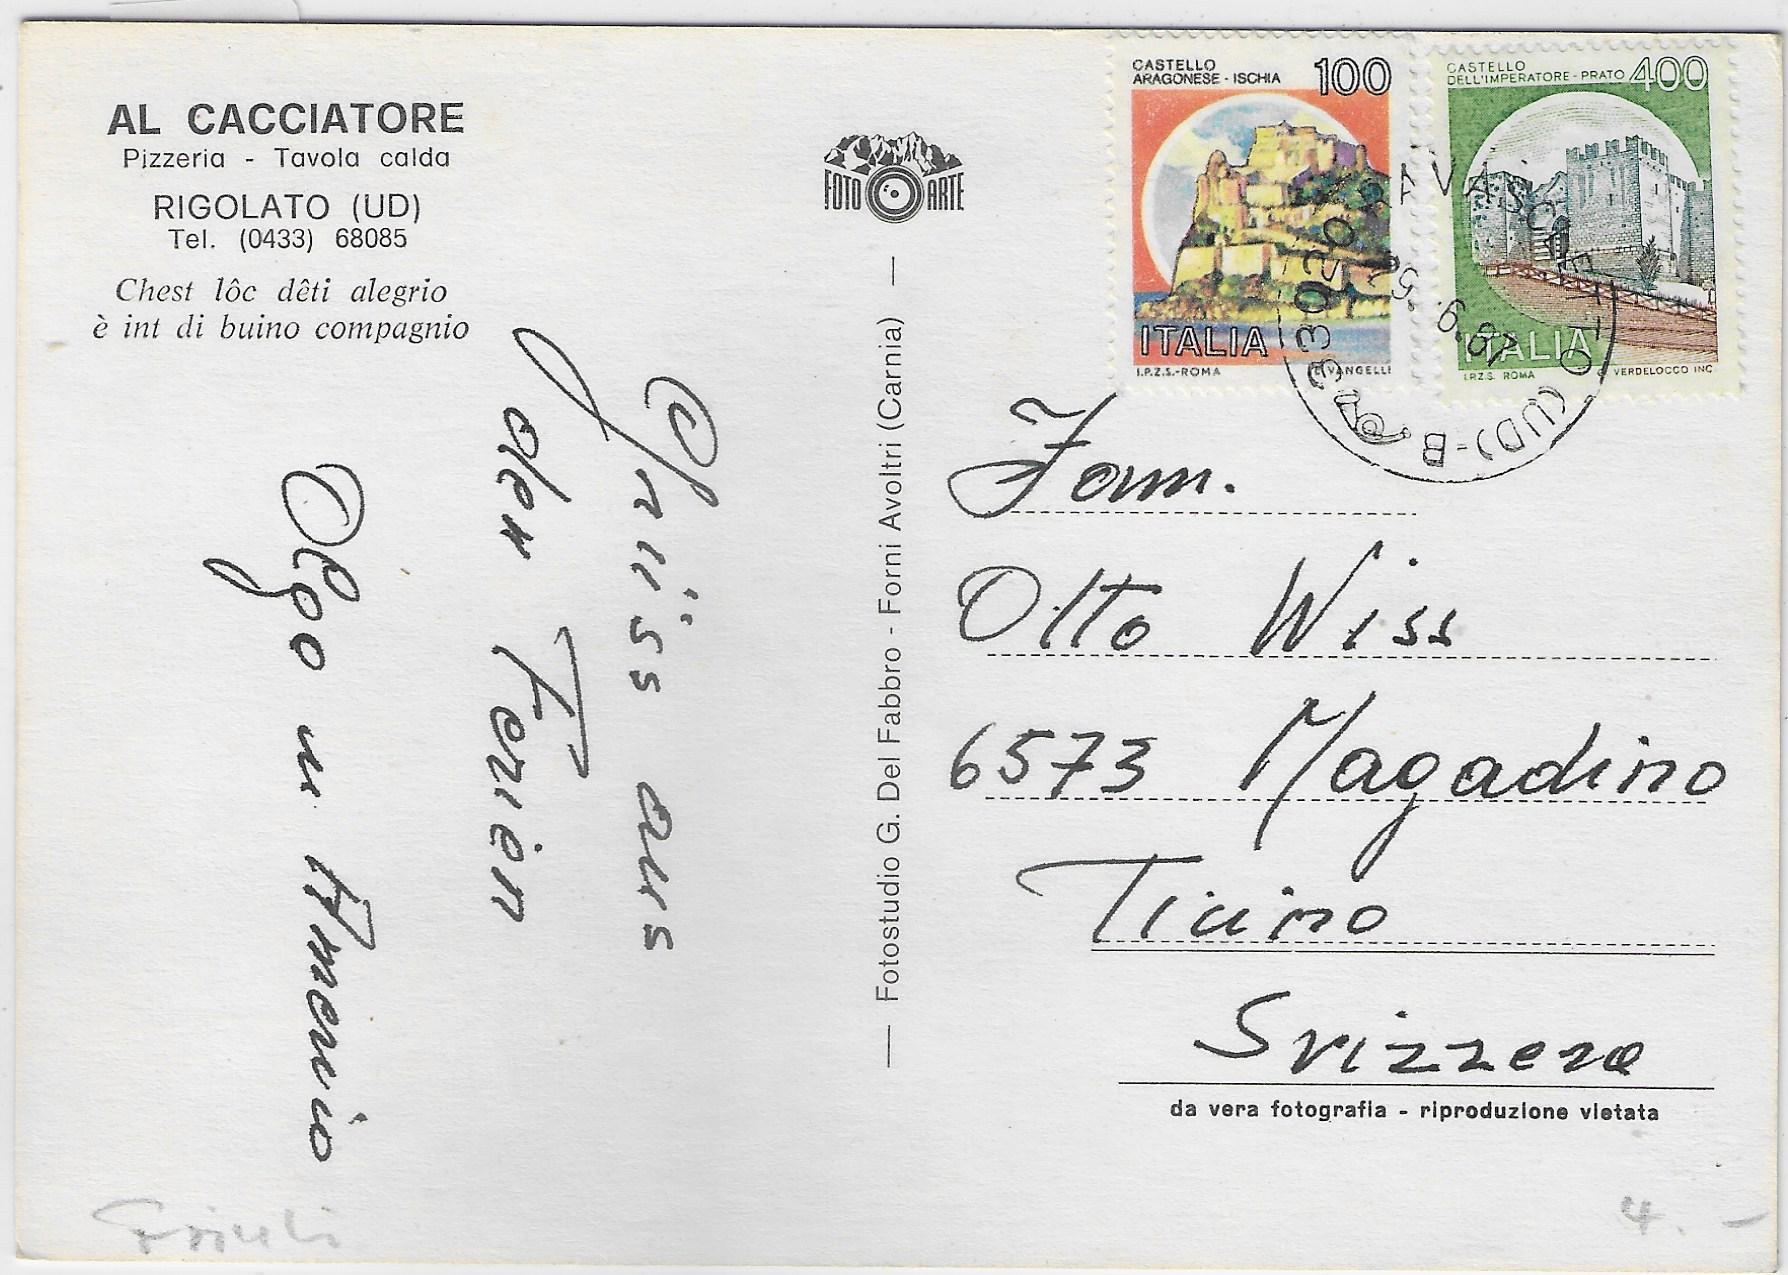 AL CACCIATORE
Pizzeria - Tavola calda
RIGOLATO (UD)
Tel. (0433) 68085
Chest lôc dêti alegrio
è int di buino compagnio
Grüss aus
den Ferien
Olga u Amerio
Friuli
FOTO ARTE
— Fotostudio G. Del Fabbro - Forni Avoltri (Carnia) —
CASTELLO
ARAGONESE - ISCHIA 100
ITALIA
I.P.Z.S.-ROMA E. VANGELLI
CASTELLO
DELL'IMPERATORE - PRATO 400
ITALIA
I.P.Z.S. ROMA VERDELOCCO INC.
RAVASCLETTO (UD) - B
33020
Fam.
Otto Wiss
6573 Magadino
Ticino
Svizzera
da vera fotografia - riproduzione vietata
4. –